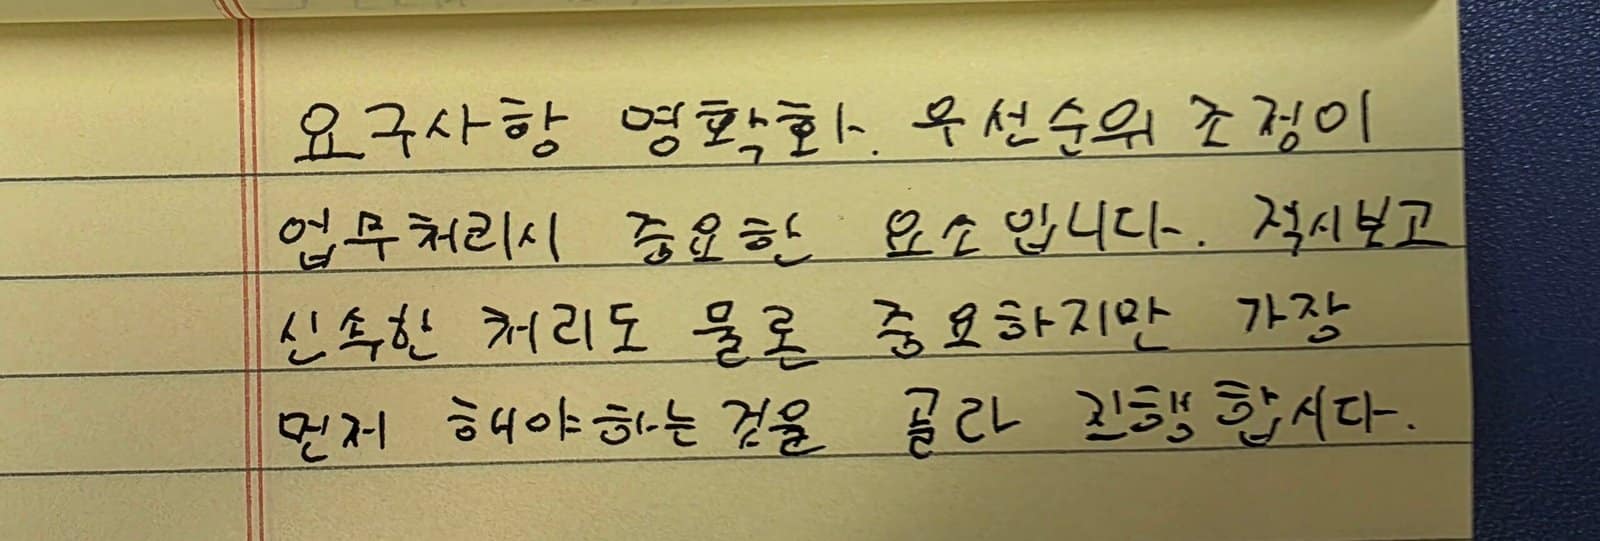 요구사항 명확화. 우선순위 조정이
업무처리시 중요한 요소입니다. 적시보고
신속한 처리도 물론 중요하지만 가장
먼저 해야하는것을 골라 진행합시다.